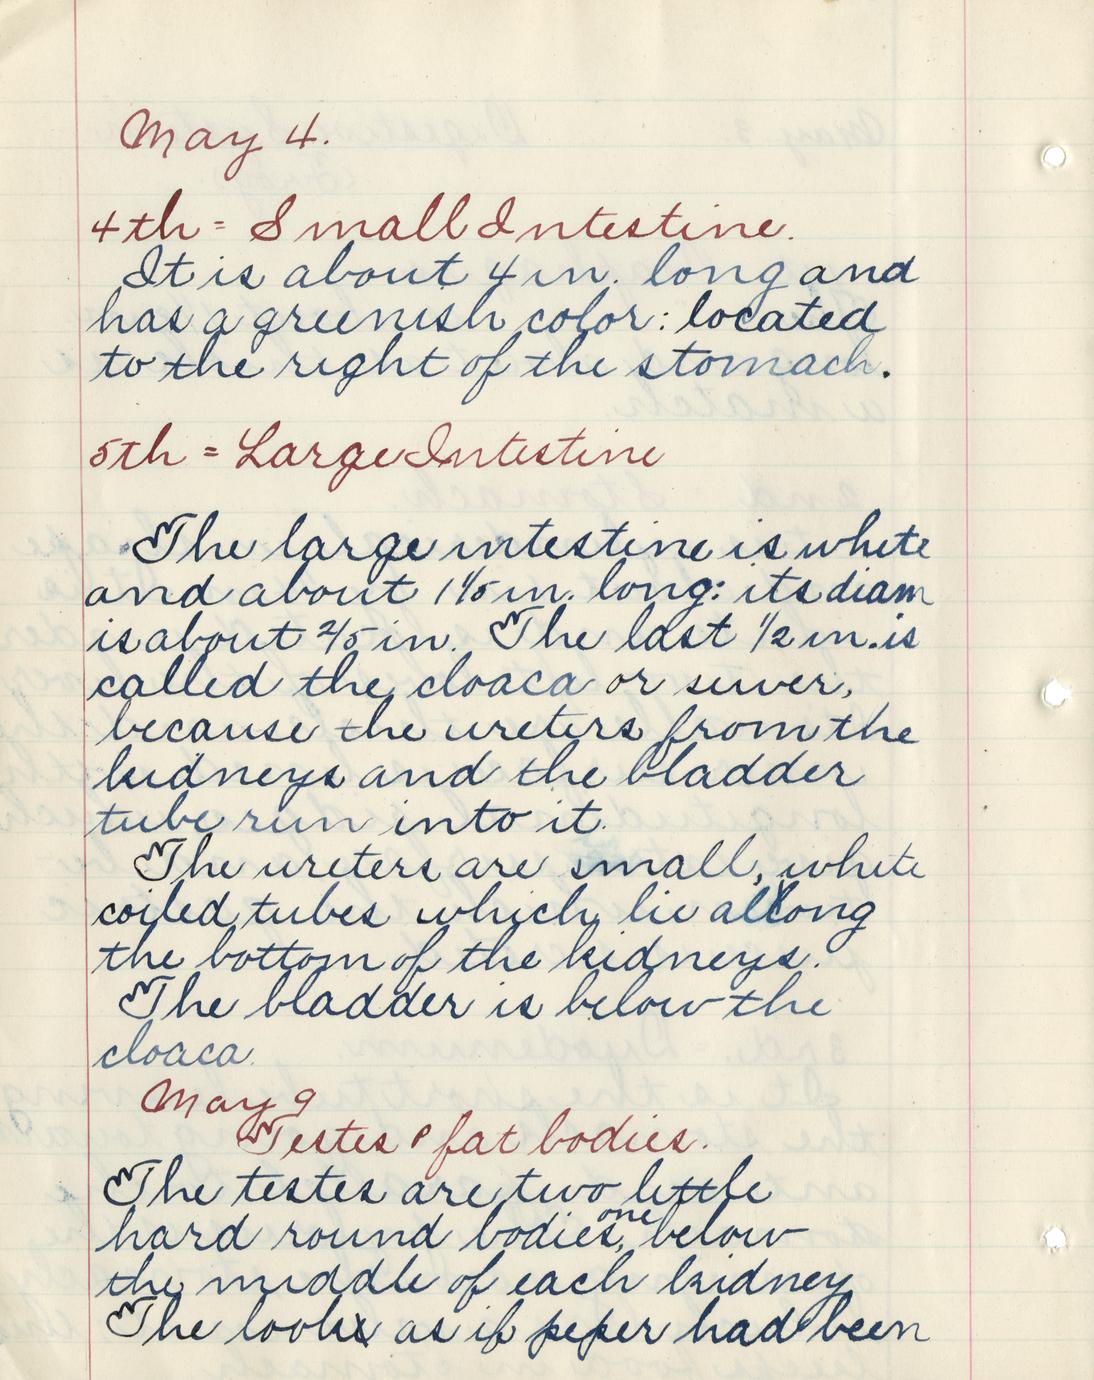 May 4.
4th = Small Intestine.
It is about 4 in. long and
has a greenish color: located
to the right of the stomach.
5th = Large Intestine
The large intestine is white
and about 1 1/5 in. long: its diam
is about 2/5 in. The last 1/2 in. is
called the cloaca or sewer,
because the ureters from the
kidneys and the bladder
tube run into it.
The ureters are small, white
coiled tubes which lie along
the bottom of the kidneys.
The bladder is below the
cloaca.
May 9
Testes & fat bodies.
The testes are two little
hard round bodies, one below
the middle of each kidney
The looks as if peper had been